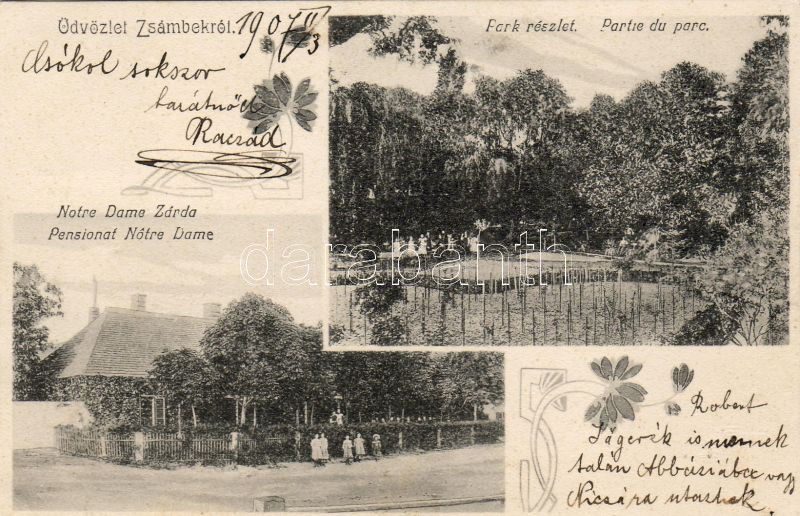 Üdvözlet Zsámbekről.
1907 II/3
Csókol sokszor
barátnőd
Park részlet. Partie du parc.
Notre Dame Zárda
Pensionat Nôtre Dame
darabanth.com
Robert
Jägerék is mennek
talán Abbáziába vagy
Nicsára utaztek.